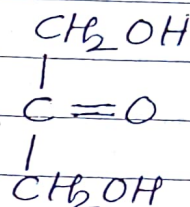 CH₂OH
|
C=O
|
CH₂OH